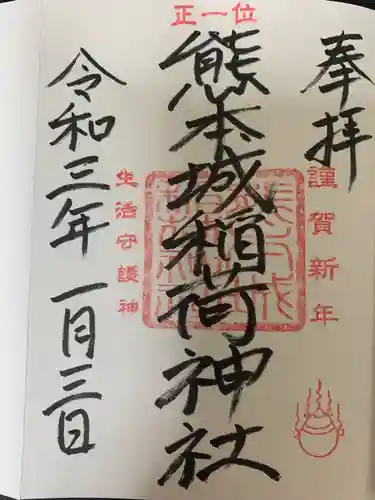 奉拝
謹賀新年
正一位
熊本城稲荷神社
生活守護神
令和三年一月三日